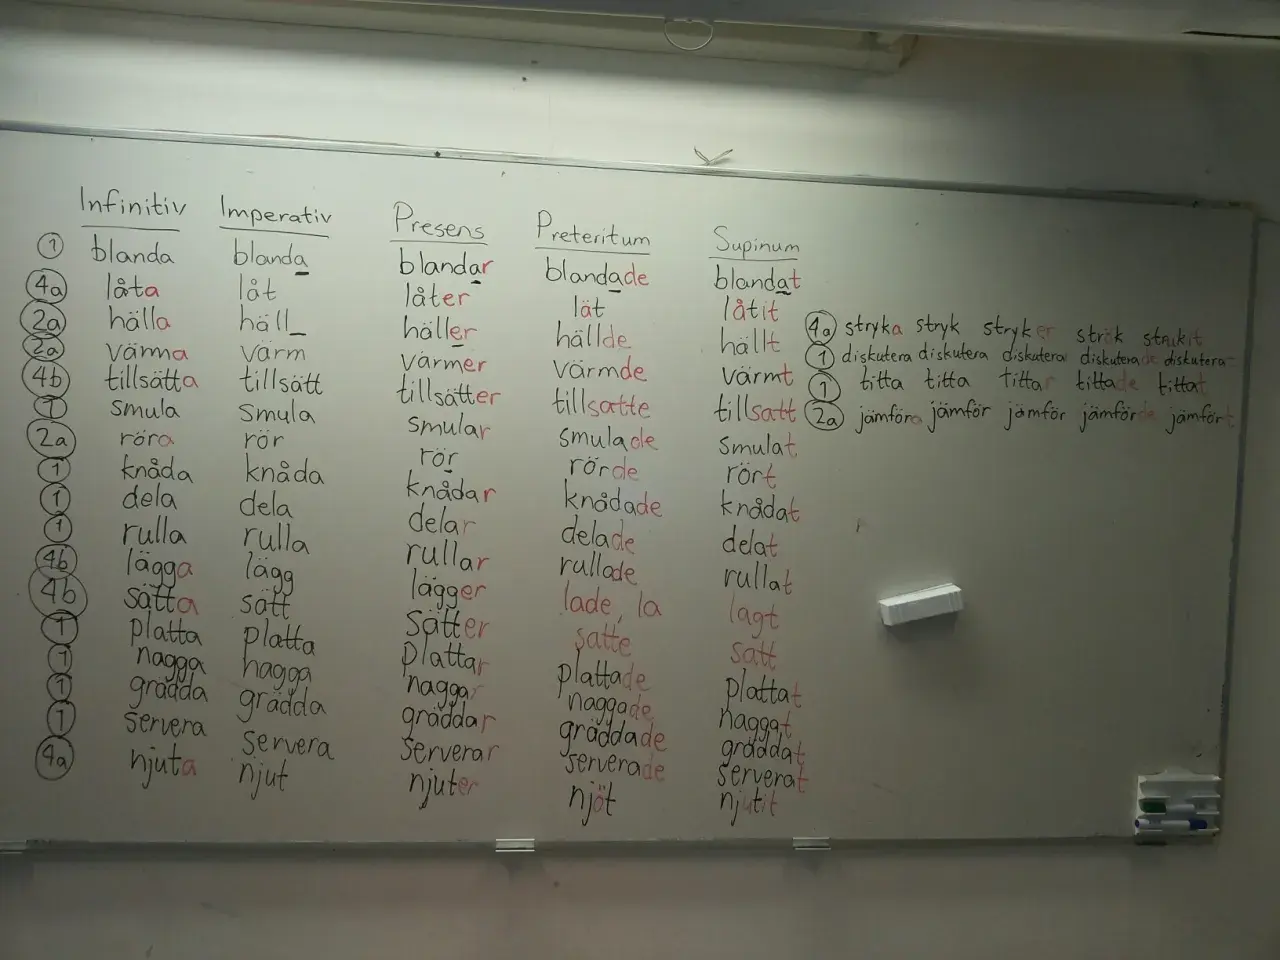 Infinitiv Imperativ Presens Preteritum Supinum
1 blanda blanda blandar blandade blandat
4a låta låt låter lät låtit
2a hälla häll häller hällde hällt
2a värma värm värmer värmde värmt
4b tillsätta tillsätt tillsätter tillsatte tillsatt
1 smula smula smular smulade smulat
2a röra rör rör rörde rört
1 knåda knåda knådar knådade knådat
1 dela dela delar delade delat
1 rulla rulla rullar rullade rullat
4b lägga lägg lägger lade, la lagt
4b sätta sätt sätter satte satt
1 platta platta plattar plattade plattat
1 nagga nagga naggar naggade naggat
1 grädda grädda gräddar gräddade gräddat
1 servera servera serverar serverade serverat
4a njuta njut njuter njöt njutit
4a stryka stryk stryker strök strukit
1 diskutera diskutera diskuterar diskuterade
1 titta titta tittar tittade tittat
2a jämföra jämför jämför jämförde jämfört